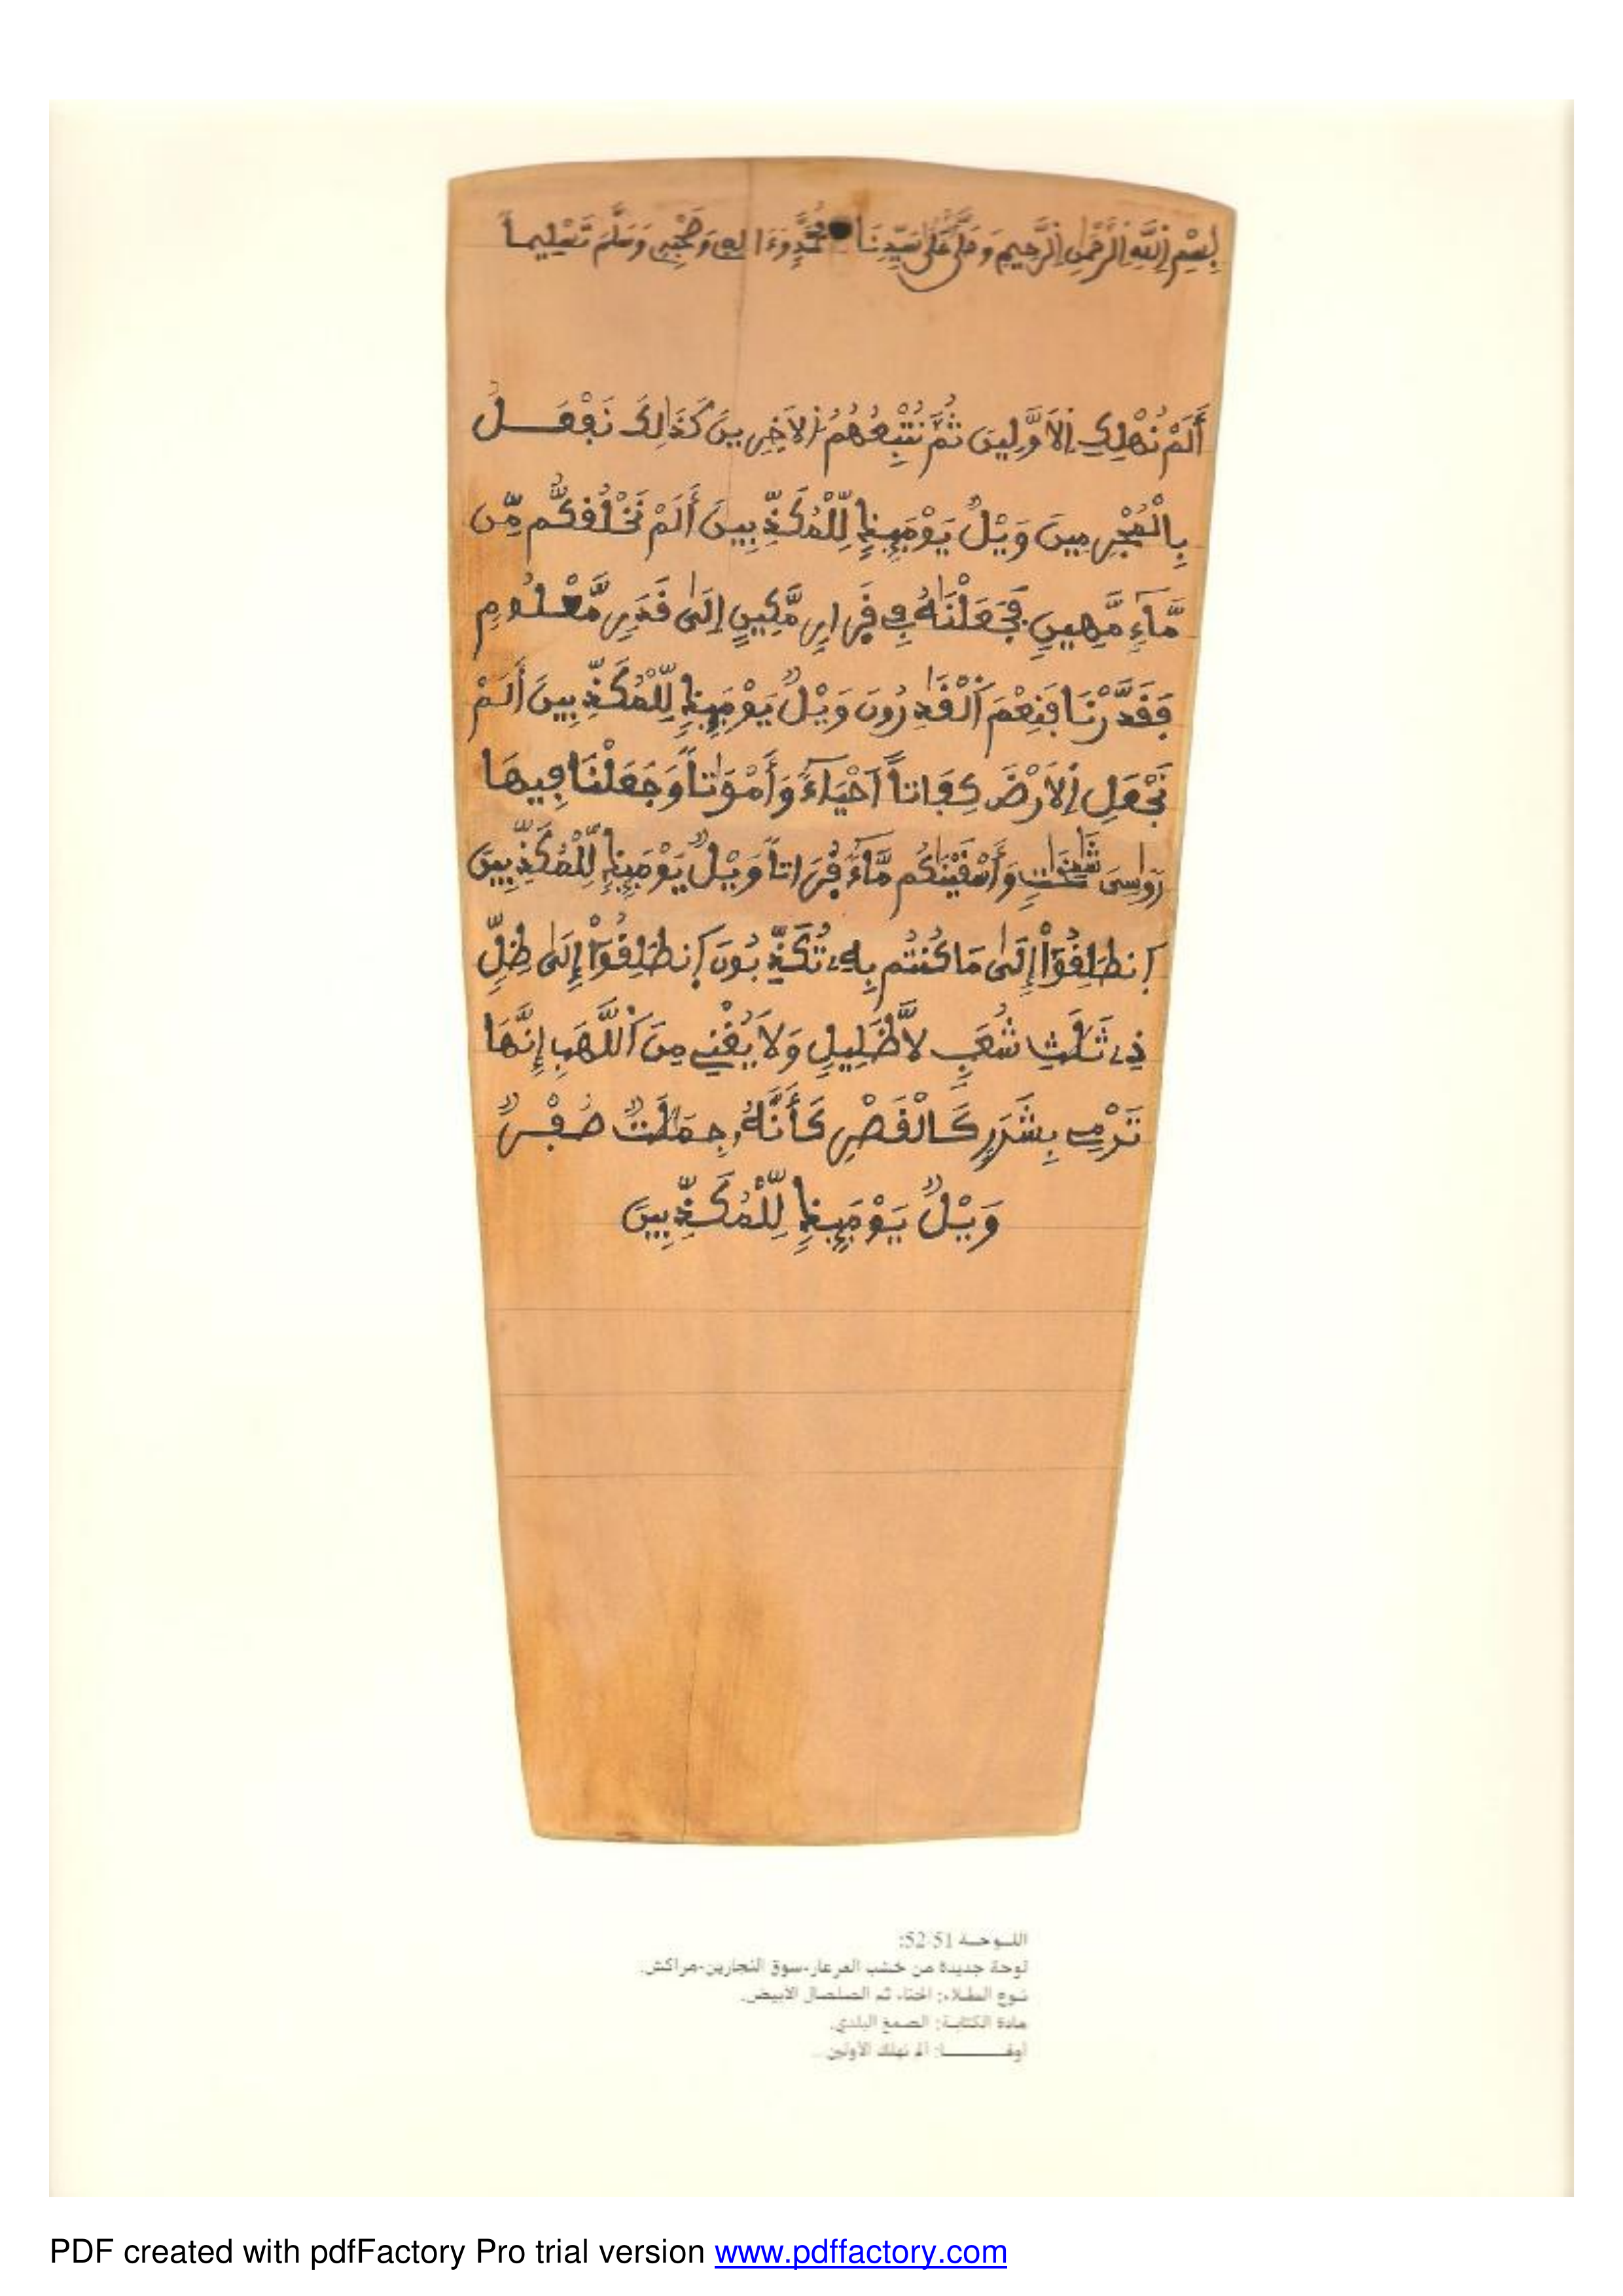 بِسْمِ اِللَّهِ اِلرَّحْمَٰنِ اِلرَّحِيمِ وَصَلَّى عَلَىٰ سَيِّدِنَا مُحَمَّدٍ وَءَالِهِ وَصَحْبِهِ وَسَلَّمَ تَسْلِيماً
أَلَمْ نُهْلِكِ اِلَاوَّلِينَ ثُمَّ نُتْبِعُهُمُ اُلَاخِرِينَ كَذَٰلِكَ نَفْعَلُ
بِالْمُجْرِمِينَ وَيْلٌ يَوْمَئِذٍ لِّلْمُكَذِّبِينَ أَلَمْ نَخْلُقكُّم مِّن
مَّآءٍ مَّهِينٍ فَجَعَلْنَٰهُ فِے قَرِارٍ مَّكِينٍ إِلَىٰ قَدَرٍ مَّعْلُومٍ
فَقَدَّرْنَا فَنِعْمَ اَلْقَٰدِرُونَ وَيْلٌ يَوْمَئِذٍ لِّلْمُكَذِّبِينَ أَلَمْ
نَجْعَلِ اِلَارْضَ كِفَاتاً اَحْيَآءً وَأَمْوَٰتاً وَجَعَلْنَا فِيهَا
رَوَٰسِىَ شَٰمِخَٰتٍ وَأَسْقَيْنَٰكُم مَّآءً فُرَاتاً وَيْلٌ يَوْمَئِذٍ لِّلْمُكَذِّبِينَ
اِنطَلِقُوٓاْ إِلَىٰ مَا كُنتُم بِهِۦ تُكَذِّبُونَ اَنطَلِقُوٓاْ إِلَىٰ ظِلٍّ
ذِے ثَلَٰثِ شُعَبٍ لَّا ظَلِيلٍ وَلَا يُغْنِے مِنَ اَللَّهَبِ إِنَّهَا
تَرْمِے بِشَرَرٍ كَالْقَصْرِ كَأَنَّهُۥ جِمَٰلَٰتٌ صُفْرٌ
وَيْلٌ يَوْمَئِذٍ لِّلْمُكَذِّبِينَ
اللوحة 51-52:
لوحة جديدة من خشب العرعار-سوق النجارين-مراكش.
نوع الطلاء: الحناء ثم الصلصال الأبيض.
مادة الكتابة: الصمغ البلدي.
أوقفـــا: ألم نهلك الأولين...
PDF created with pdfFactory Pro trial version www.pdffactory.com